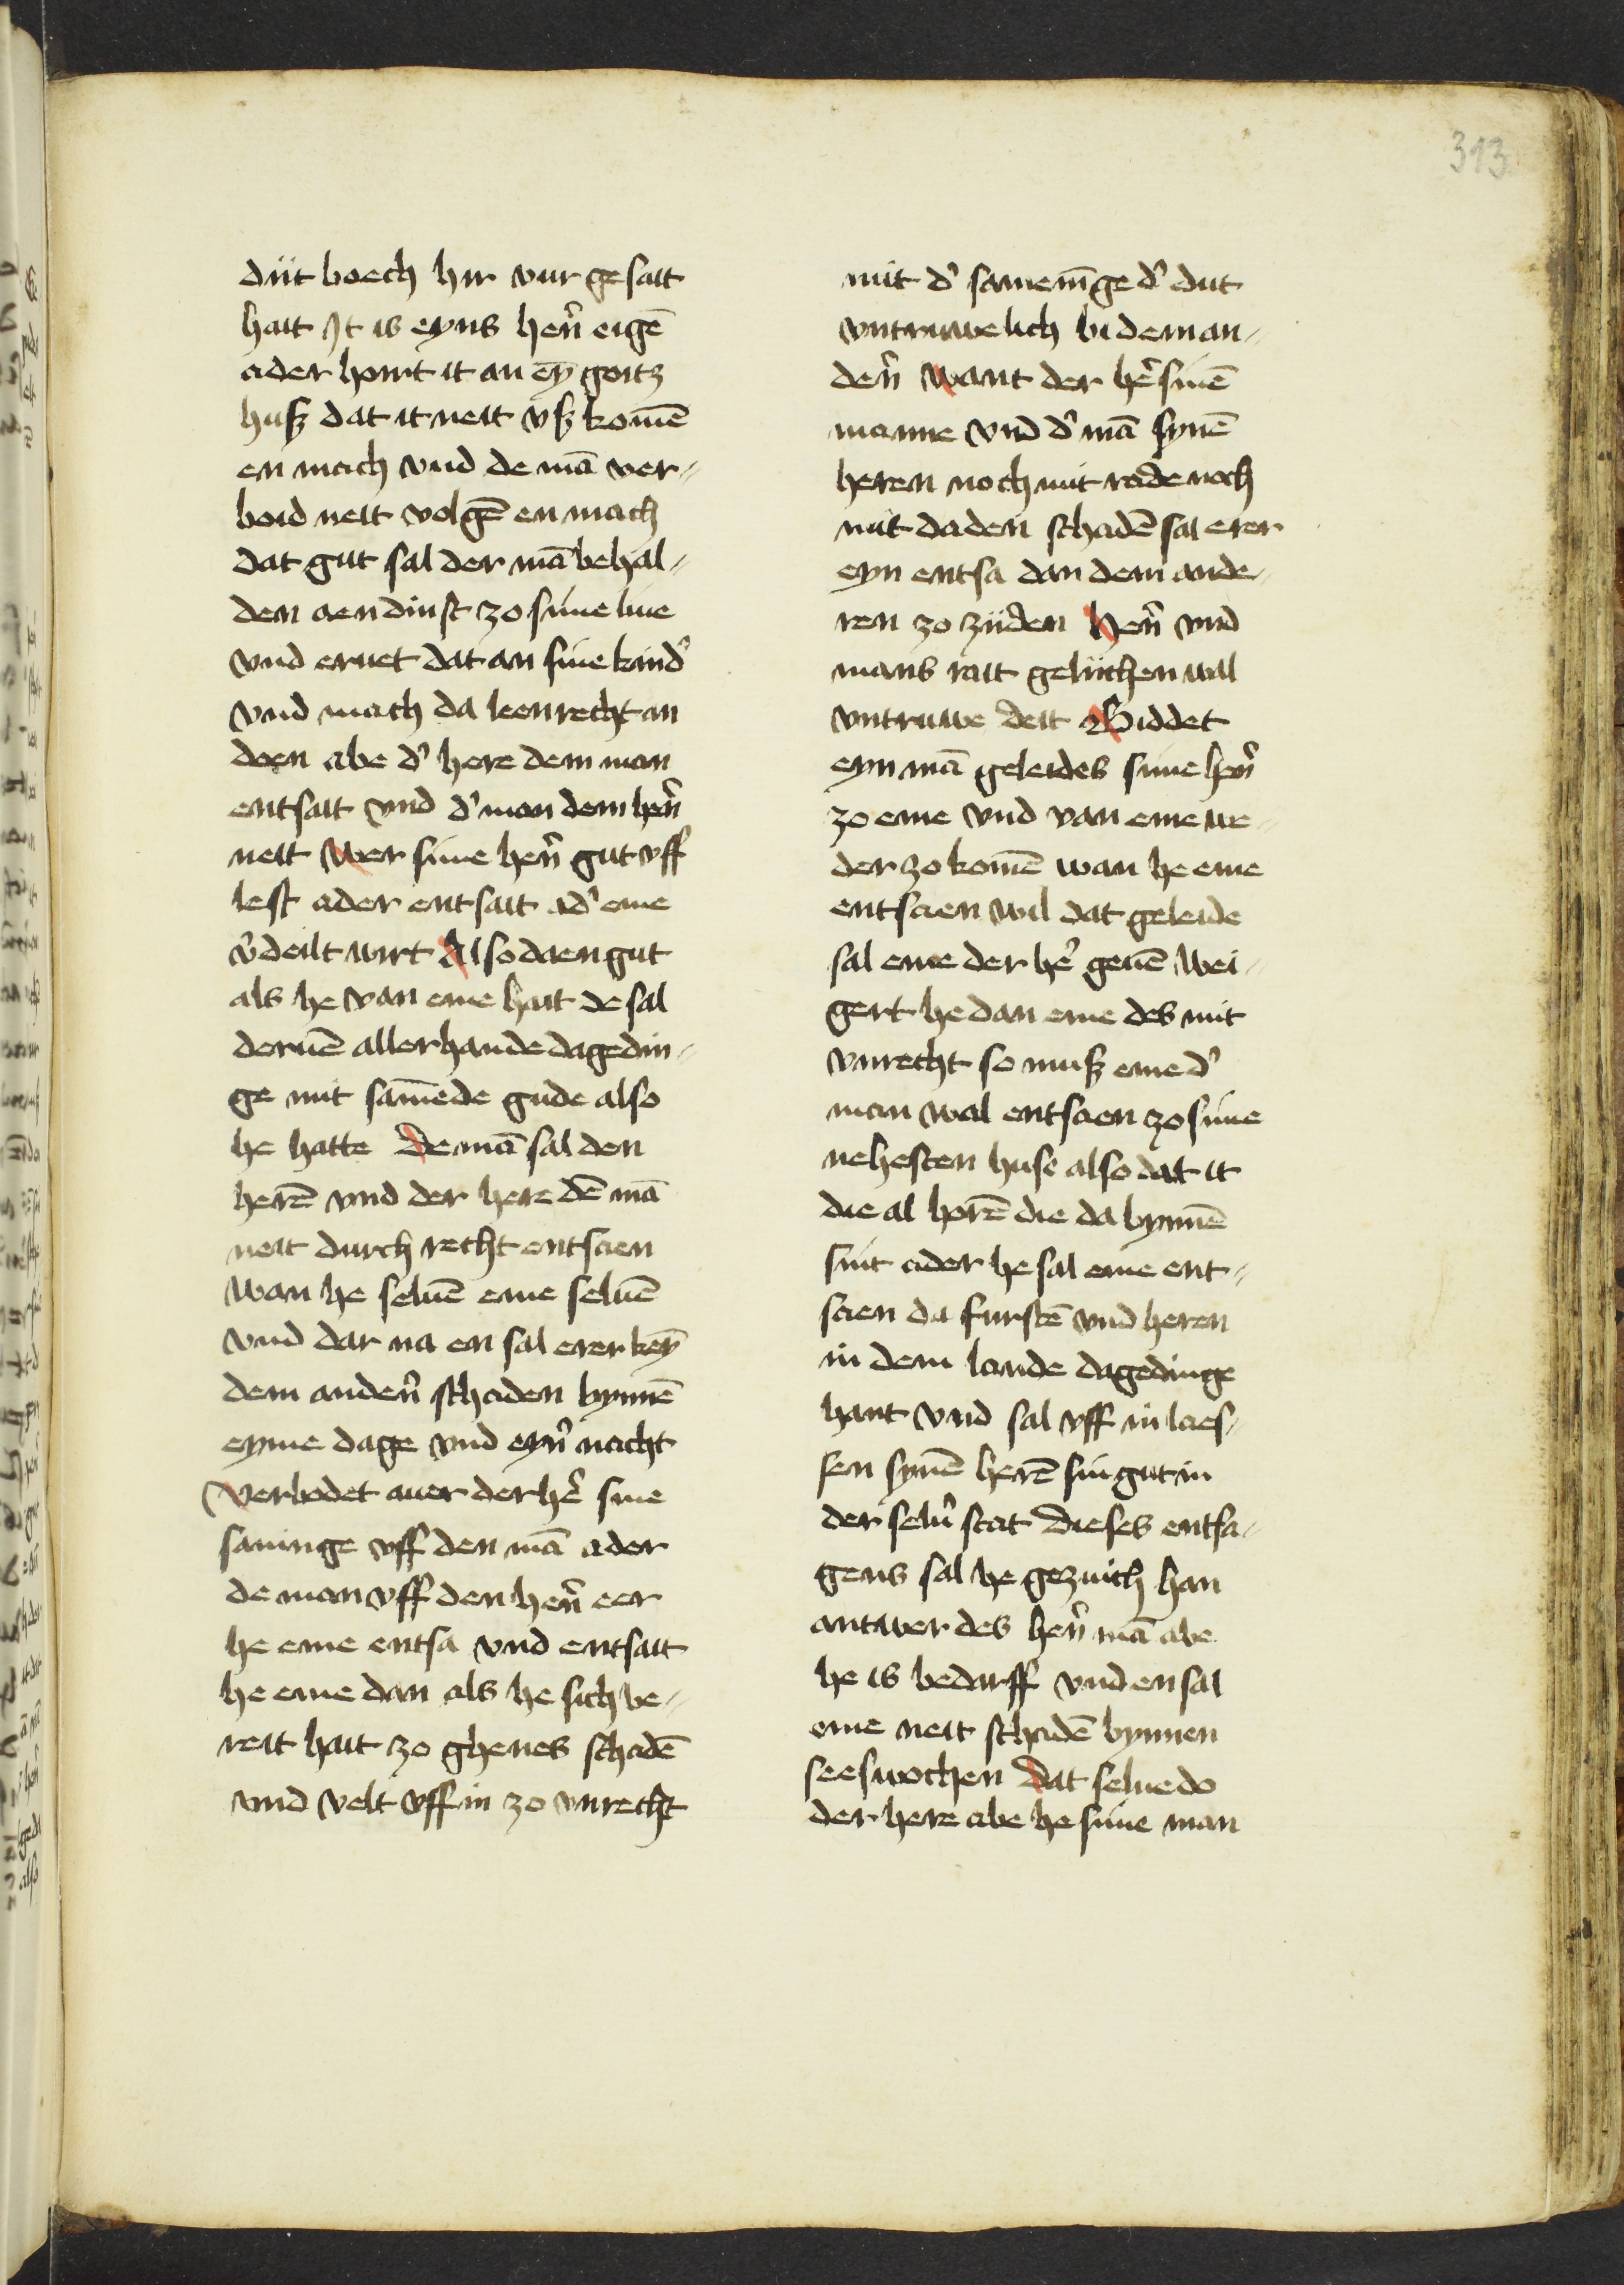 313
düt boech hir vur gesatt
hait It is eyns hen̄ eigē
ader hoirt it an eȳ goitz
huß dat it neit vß komē
en mach vnd de mā ver-
boid neit volgē en mach
dat gut sal der mā behal-
den aen dinst zo sime liue
vnd eruet dat an sine kind'
vnd mach da leenrecht an
doen abe d' here dem man
entsait vnd d' man dem hern̄
neit Wer sime hern̄ gut vff
lest ader entsait ad' eme
v'deilt wirt Also daen gut
als he van eme hait de sal
deruē allerhande dagedin-
ge mit samēde gude also
he hatte De mā sal den
herē vnd der here dē mā
neit durch recht entsaen
wan he seluē eme seluē
vnd dar na en sal erer keȳ
dem andern̄ schaden bynnē
eyme dage vnd eyn̄ nacht
Verbodet auer der he' sine
saminge vff den mā ader
de man vff den hern̄ eer
he eme entsa vnd entsait
he eme dan als he sich be-
reit hait zo ghenes schadē
vnd velt vff in zo vnrecht
mit d' samenīge d' dut
vntruwelich bi dem an-
dern̄ Want der he' sinē
manne vnd d' mā synē
heren noch mit rade noch
mit daden schadē sal erer
eyn entsa dan dem ande-
ren zo zijden Hern̄ vnd
mans rait gelichen wal
vntruwe deit Biddet
eyn mā geleides sime hern̄
zo eme vnd van eme we-
der zo komē wan he eme
entsaen wil dat geleide
sal eme der he' geuē Wei-
gert he dan eme des mit
vnrecht so muß eme d'
man wal entsaen zo sime
nehesten huse also dat it
die al horē die da bynnē
sint ader he sal eme ent-
saen da furstē vnd heren
in dem lande dagedinge
hant vnd sal vff in laes-
sen synē herē sin gut in
der selu' stat Dieses entsa-
gens sal he gezuich han
antwer des hern̄ mā abe
he is bedarff vnd en sal
eme neit schadē bynnen
seeswochen Dat selue do
der here abe he sime man